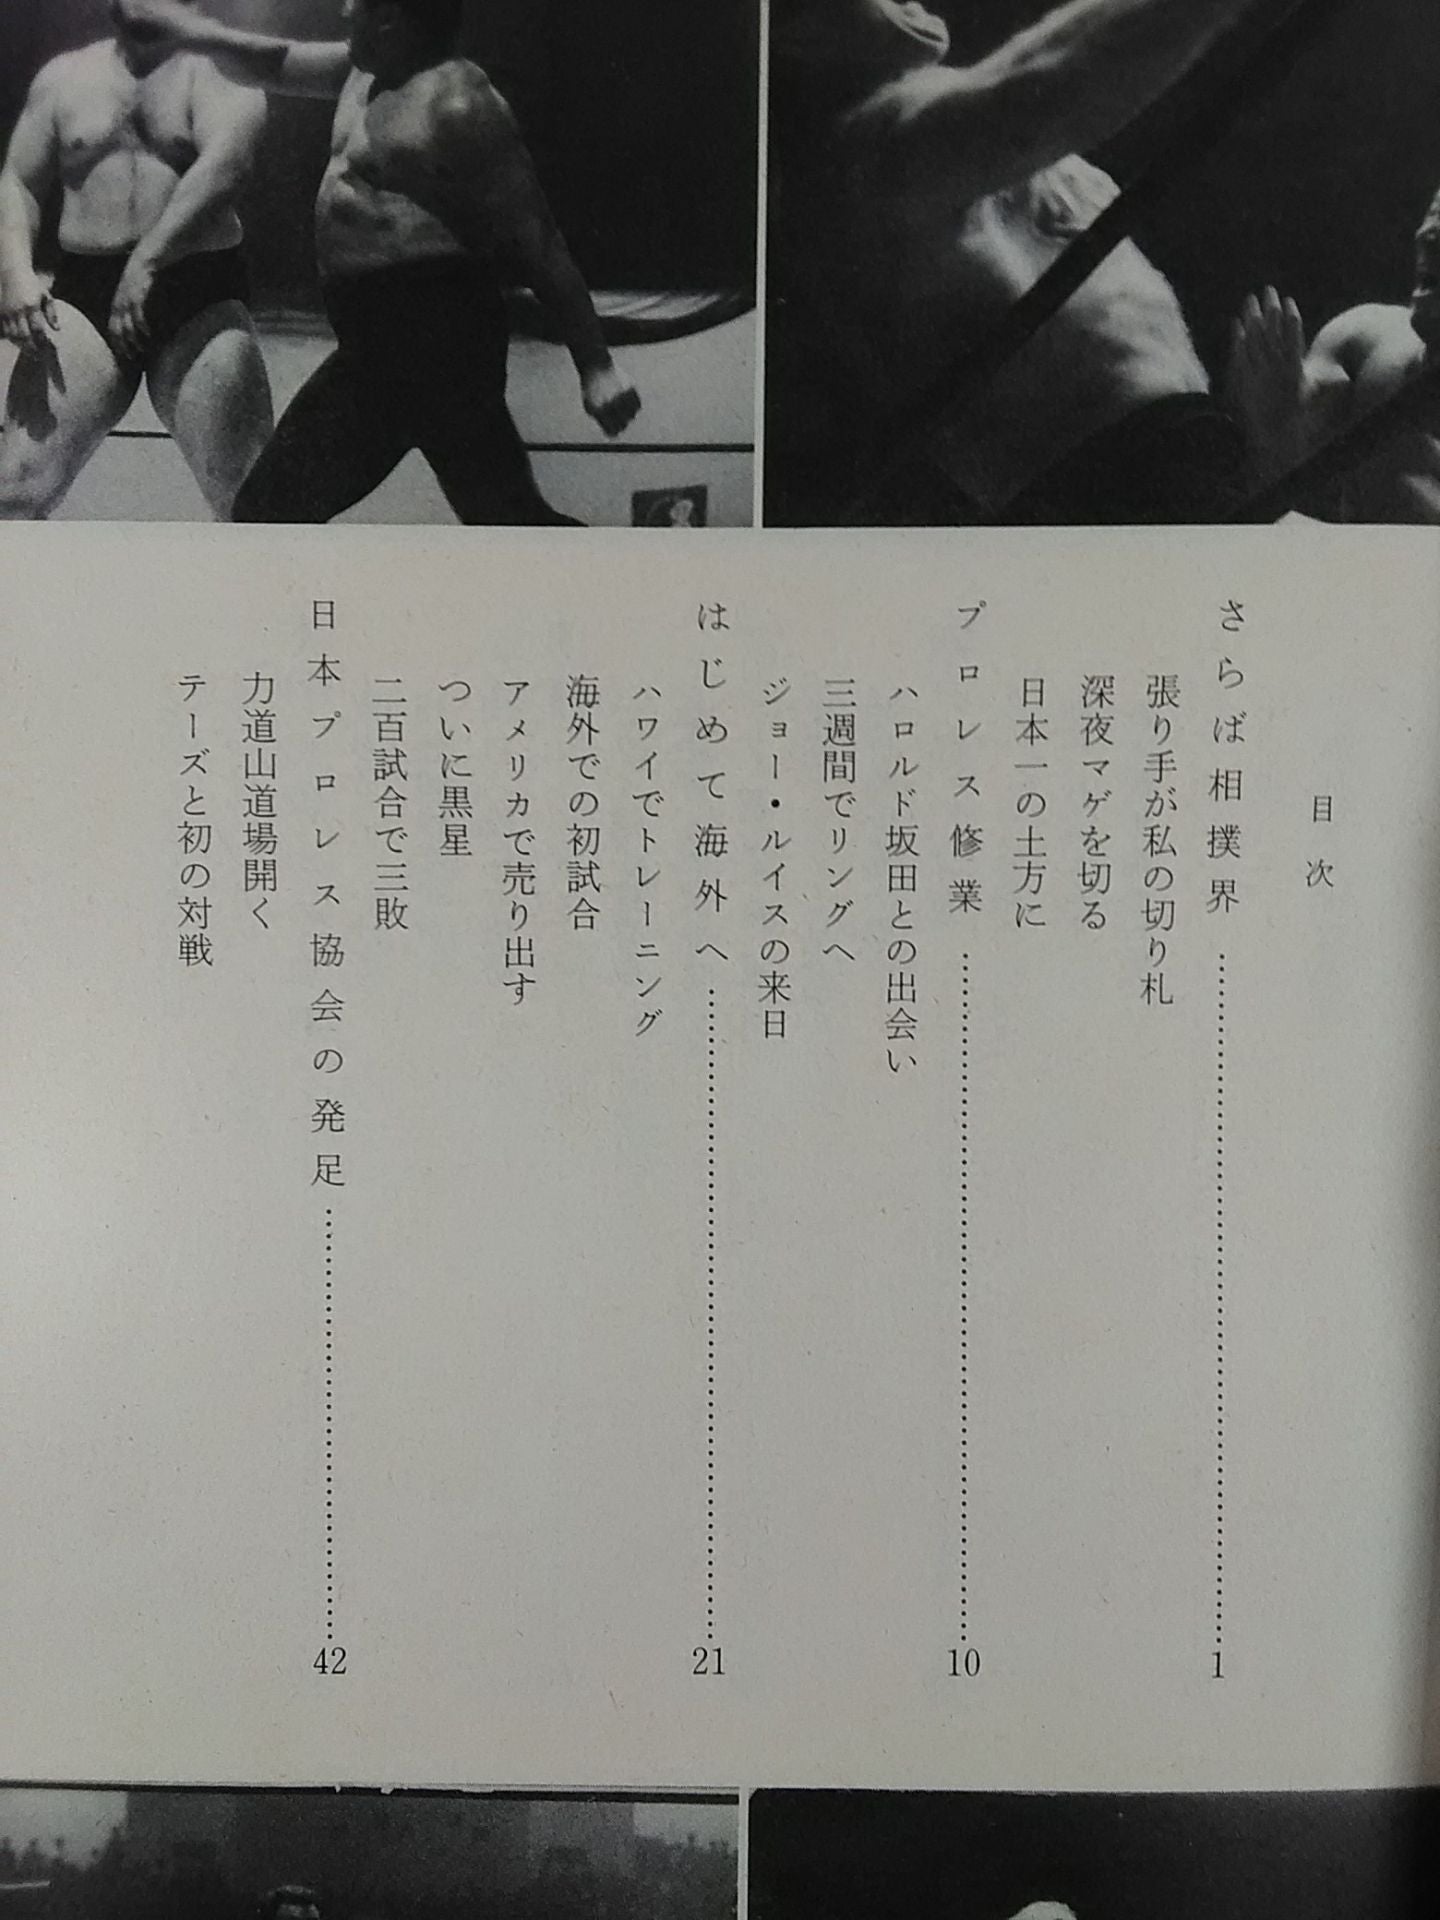 目次
さらば相撲界……………1
張り手が私の切り札
深夜マゲを切る
日本一の土方に
プロレス修業……………10
ハロルド坂田との出会い
三週間でリングへ
ジョー・ルイスの来日
はじめて海外へ……………21
ハワイでトレーニング
海外での初試合
アメリカで売り出す
ついに黒星
二百試合で三敗
日本プロレス協会の発足……………42
力道山道場開く
テーズと初の対戦